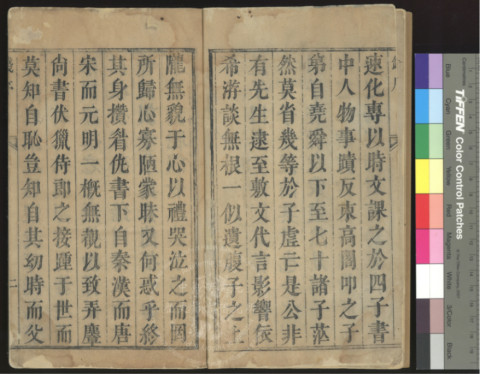 速化專以時文課之於四子書
中人物事蹟反束高閣叩之子
弟自堯舜以下至七十諸子茫
然莫省幾等於子虛亡是公非
有先生逮至敷文代言影響依
希游談無根一似遺腹子之上
隴無貌于心以禮哭泣之而罔
所歸心寡陋蒙昧又何惑乎終
其身攢眥仇書下自秦漢而唐
宋而元明一概無覩以致弄麞
尚書伏獵侍郎之接踵于世而
莫知自恥豈知自其幼時而父
二
TIFFEN Color Control Patches
Blue
Cyan
Green
Yellow
Red
Magenta
White
3/Color
Black